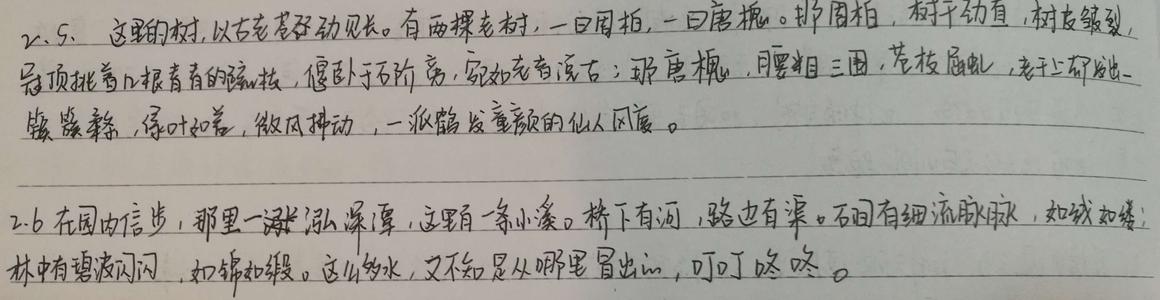 2.5. 这里的树,以古老苍劲见长。有两棵老树,一曰周柏,一曰唐槐。那周柏,树干劲直,树皮皱裂,
冠顶挑着几根青青的疏枝,偃卧于石阶旁,宛如老者说古;那唐槐,腰粗三围,苍枝屈虬,老干上却发出一
簇簇柔条,绿叶如盖,微风拂动,一派鹤发童颜的仙人风度。
2.6 在园内信步,那里一泓深潭,这里有一条小溪。桥下有河,路边有渠。石间有细流脉脉,如线如缕;
林中有碧波闪闪,如锦如缎。这么多水,又不知是从哪里冒出的,叮叮咚咚。